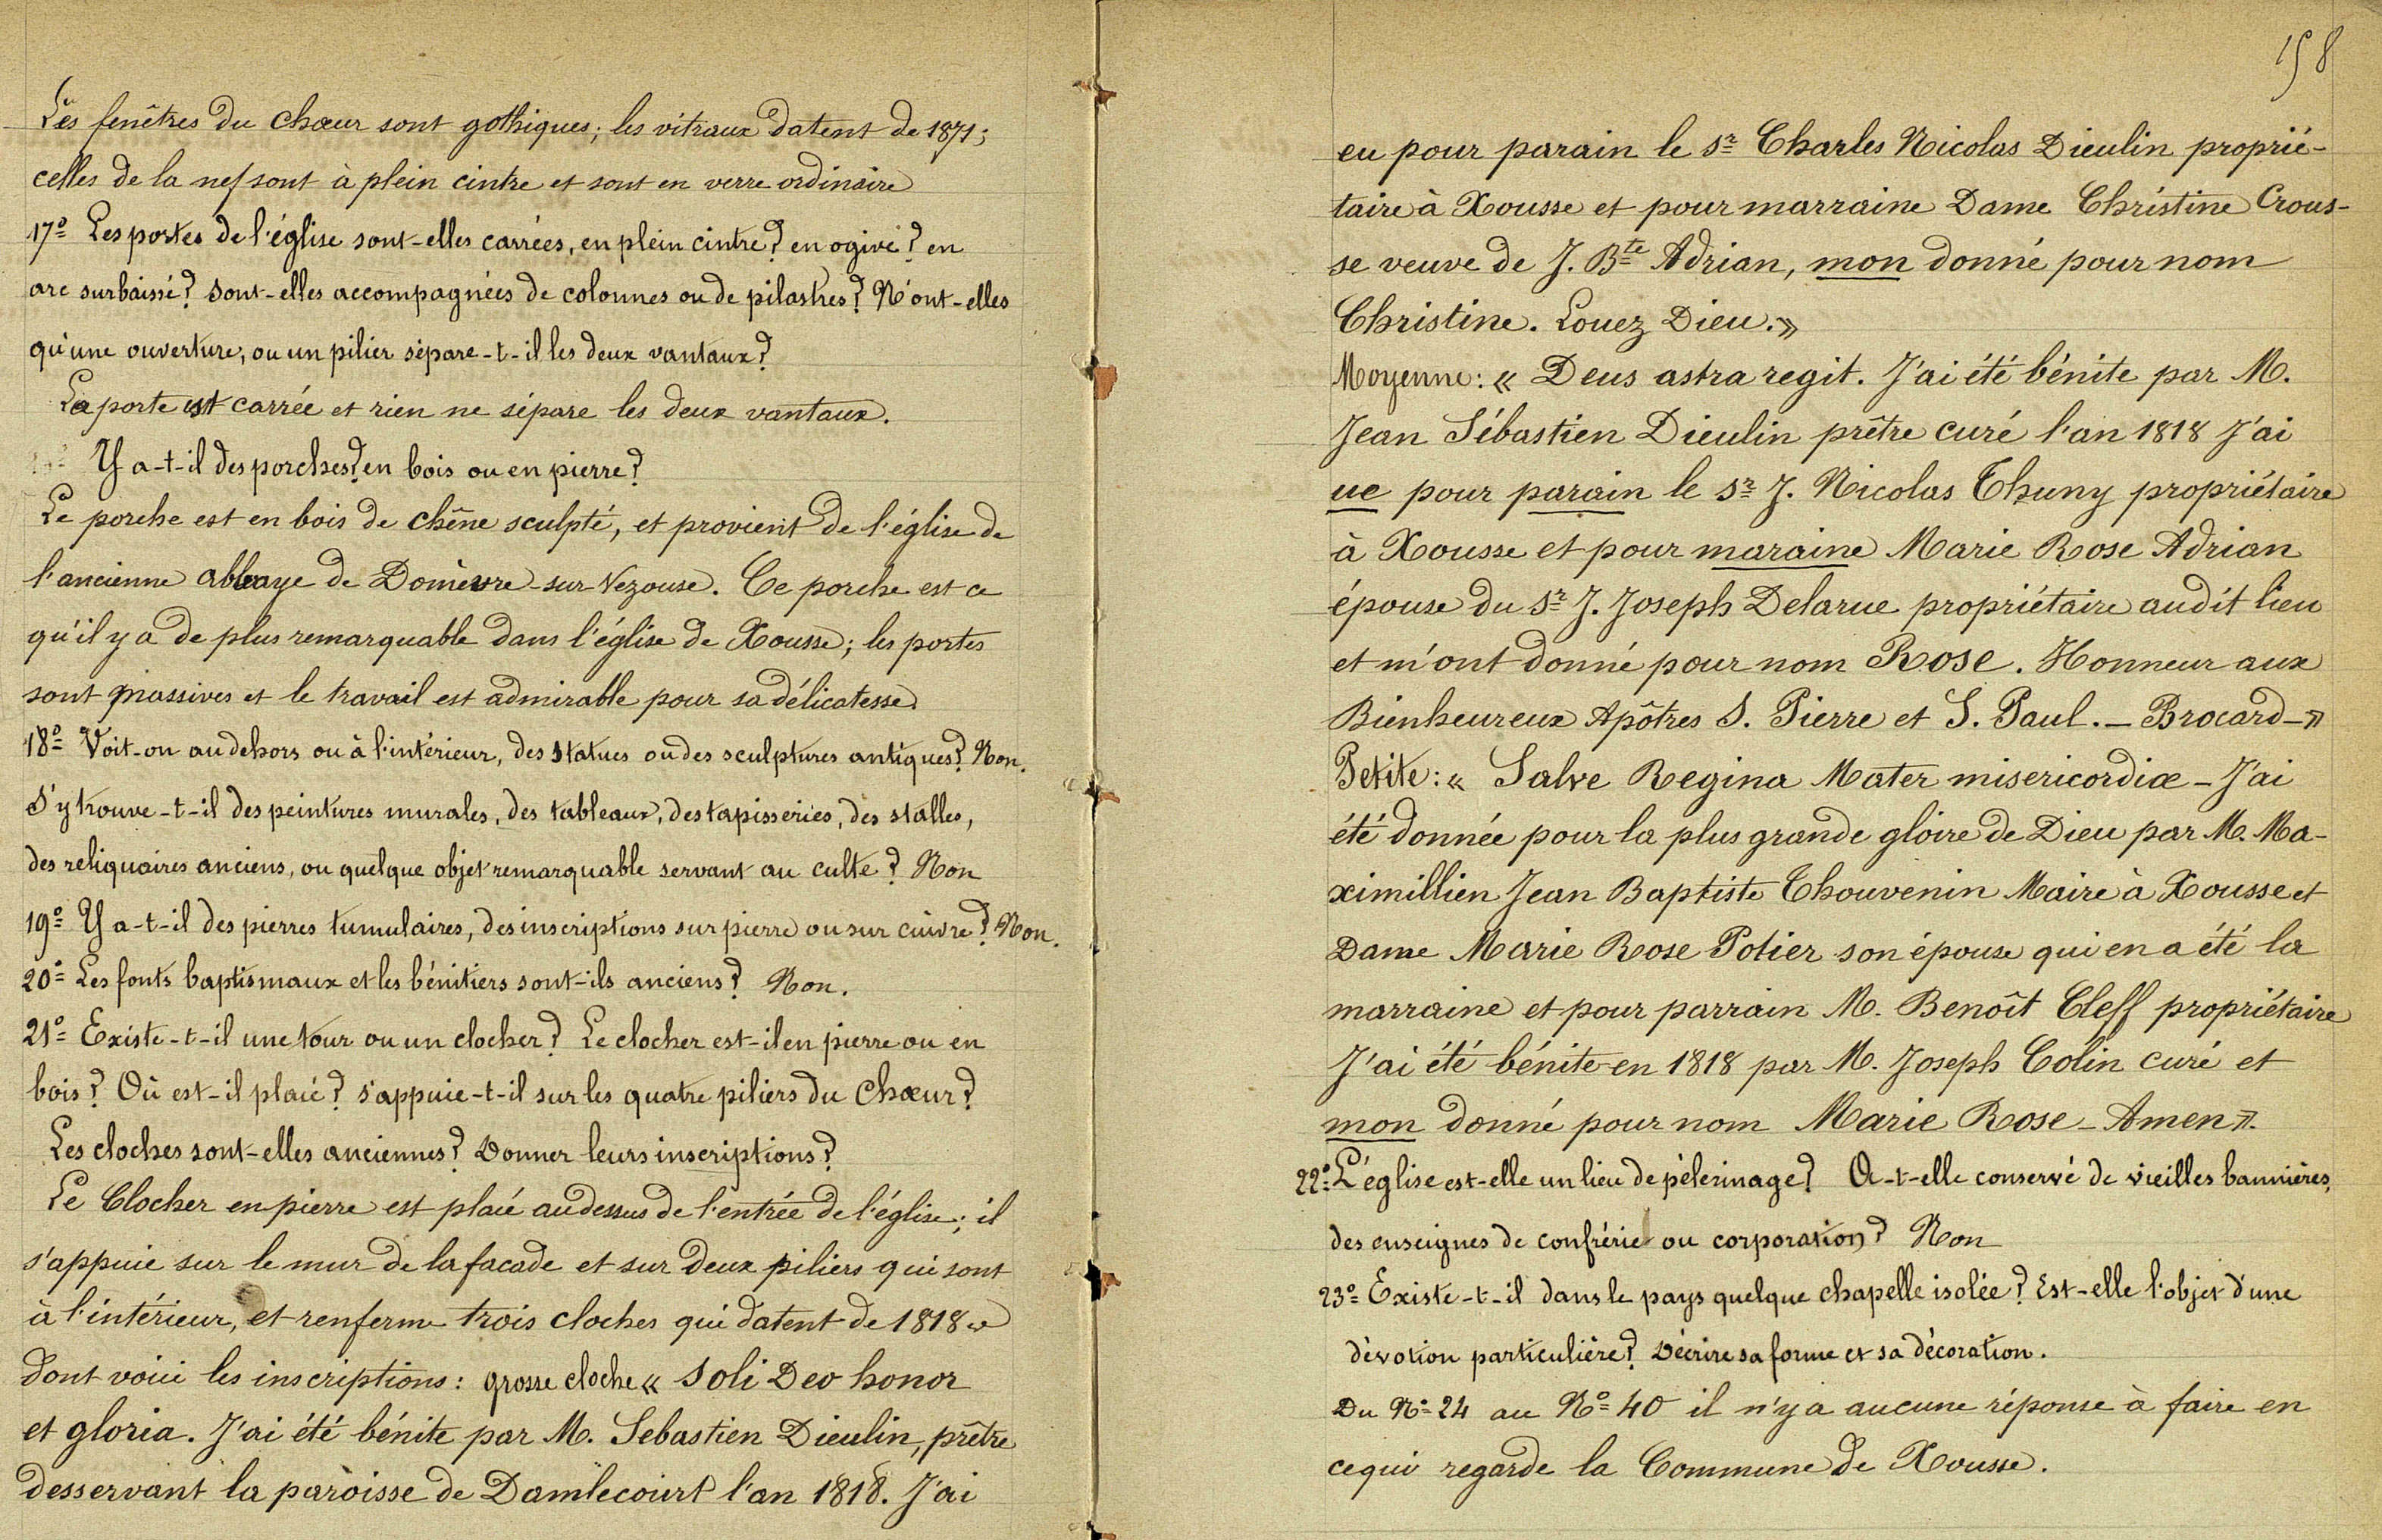 Les fenêtres du chœur sont gothiques; les vitraux datent de 1871;
celles de la nef sont à plein cintre et sont en verre ordinaire
17º Les portes de l'église sont-elles carrées, en plein cintre? en ogive? en
arc surbaissé? Sont-elles accompagnées de colonnes ou de pilastres? N'ont-elles
qu'une ouverture, ou un pilier sépare-t-il les deux vantaux?
La porte est carrée et rien ne sépare les deux vantaux.
Y a-t-il des porches? en bois ou en pierre?
Le porche est en bois de chêne sculpté, et provient de l'église de
l'ancienne abbaye de Domèvre-sur-Vezouse. Ce porche est ce
qu'il y a de plus remarquable dans l'église de Xousse; les portes
sont massives et le travail est admirable pour sa délicatesse.
18º Voit-on au dehors ou à l'intérieur, des statues ou des sculptures antiques? Non.
S'y trouve-t-il des peintures murales, des tableaux, des tapisseries, des stalles,
des reliquaires anciens, ou quelque objet remarquable servant au culte? Non
19º Y a-t-il des pierres tumulaires, des inscriptions sur pierre ou sur cuivre? Non.
20º Les fonts baptismaux et les bénitiers sont-ils anciens? Non.
21º Existe-t-il une tour ou un clocher? Le clocher est-il en pierre ou en
bois? Où est-il placé? s'appuie-t-il sur les quatre piliers du Chœur?
Les cloches sont-elles anciennes? Donner leurs inscriptions?
Le Clocher en pierre est placé au dessus de l'entrée de l'église; il
s'appuie sur le mur de la facade et sur deux piliers qui sont
à l'intérieur, et renferme trois cloches qui datent de 1818 et
dont voici les inscriptions: grosse cloche « Soli Deo honor
et gloria. J'ai été bénite par M. Sebastien Dieulin, prêtre
desservant la paroisse de Damlecourt l'an 1818. J'ai
158
eu pour parain le Sr Charles Nicolas Dieulin proprié-
taire à Xousse et pour marraine Dame Christine Crous-
se veuve de J. Bte Adrian, mon donné pour nom
Christine. Louez Dieu.»
Moyenne: « Deus astra regit. J'ai été bénite par M.
Jean Sébastien Dieulin prêtre curé l'an 1818 J'ai
ue pour parain le Sr J. Nicolas Thuny propriétaire
à Xousse et pour maraine Marie Rose Adrian
épouse du Sr J. Joseph Delarue propriétaire audit lieu
et m'ont donné pour nom Rose. Honneur aux
Bienheureux Apôtres S. Pierre et S. Paul. – Brocard –»
Petite: « Salve Regina Mater misericordiæ – J'ai
été donnée pour la plus grande gloire de Dieu par M. Ma-
ximillien Jean Baptiste Thouvenin Maire à Xousse et
Dame Marie Rose Potier son épouse qui en a été la
marraine et pour parrain M. Benoît Cleff propriétaire
J'ai été bénite en 1818 par M. Joseph Colin curé et
mon donné pour nom Marie Rose – Amen ».
22º L'église est-elle un lieu de pèlerinage? A-t-elle conservé de vieilles bannières,
des enseignes de confrérie ou corporation? Non
23º Existe-t-il dans le pays quelque chapelle isolée? Est-elle l'objet d'une
dévotion particulière? Décrire sa forme et sa décoration.
Du Nº 24 au Nº 40 il n'y a aucune réponse à faire en
ce qui regarde la Commune de Xousse.